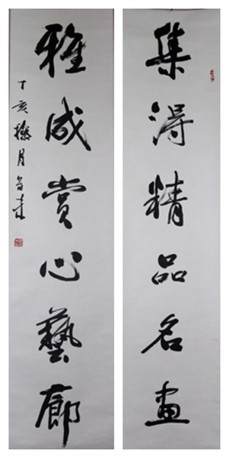 集得精品名画
雅成赏心藝廊
丁亥
月